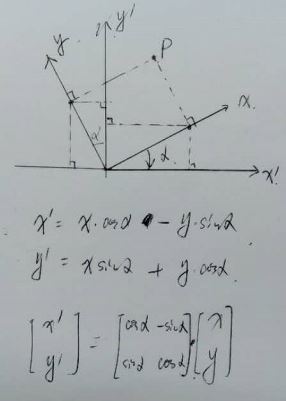 y
y'
P
α
x
α
x'
x' = x·cosα - y·sinα
y' = x sinα + y·cosα
[x' y'] = [cosα -sinα sinα cosα]·[x y]